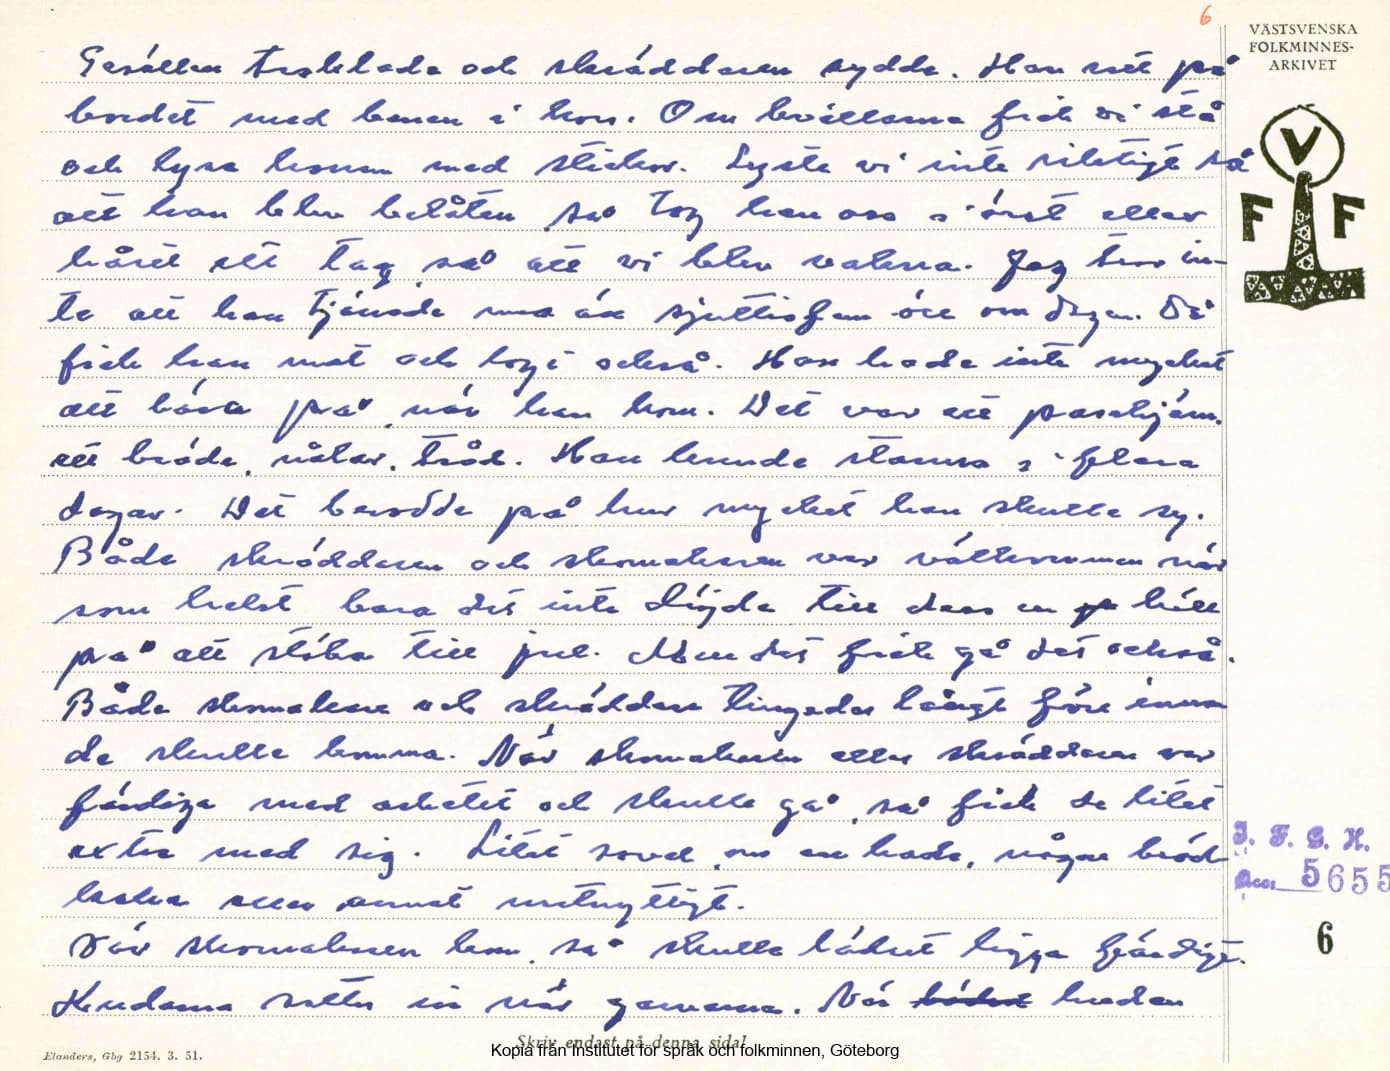 6
VÄSTSVENSKA
FOLKMINNES-
ARKIVET
Gesällen tråcklade och skräddaren sydde. Han satt på
bordet med benen i kors. Om kvällarna fick vi stå
och lysa honom med stickor. Lyste vi inte riktigt så
att han blev belåten, så tog han oss i örat eller
håret ett tag, så att vi blev vakna. Jag tror in-
te att han tjänade mer än sjuttiofem öre om dagen. Då
fick han mat och logi också. Han hade inte mycket
att bära på, när han kom. Det var ett pressjärn,
ett bräde, nålar, tråd. Han kunde stanna i flera
dagar. Det berodde på hur mycket han skulle sy.
Både skräddaren och skomakaren var välkommen när
som helst bara det inte dröjde till dess en höll
på att stöka till jul. Men det fick gå det också.
Både skomakare och skräddare tingades långt före innan
de skulle komma. När skomakaren eller skräddaren var
färdiga med arbetet och skulle gå, så fick de litet
extra med sig. Litet sovel, om en hade, några bröd-
kakor eller annat matnyttigt.
När skomakaren kom, så skulle lädret ligga färdigt.
Hudarna sattes in när garvarna. När hudan
V
F F
I. F. G. H.
Acc. 5655
6
Skriv endast på denna sida!
Elanders, Gbg 2154. 3. 51.
Kopia från Institutet för språk och folkminnen, Göteborg